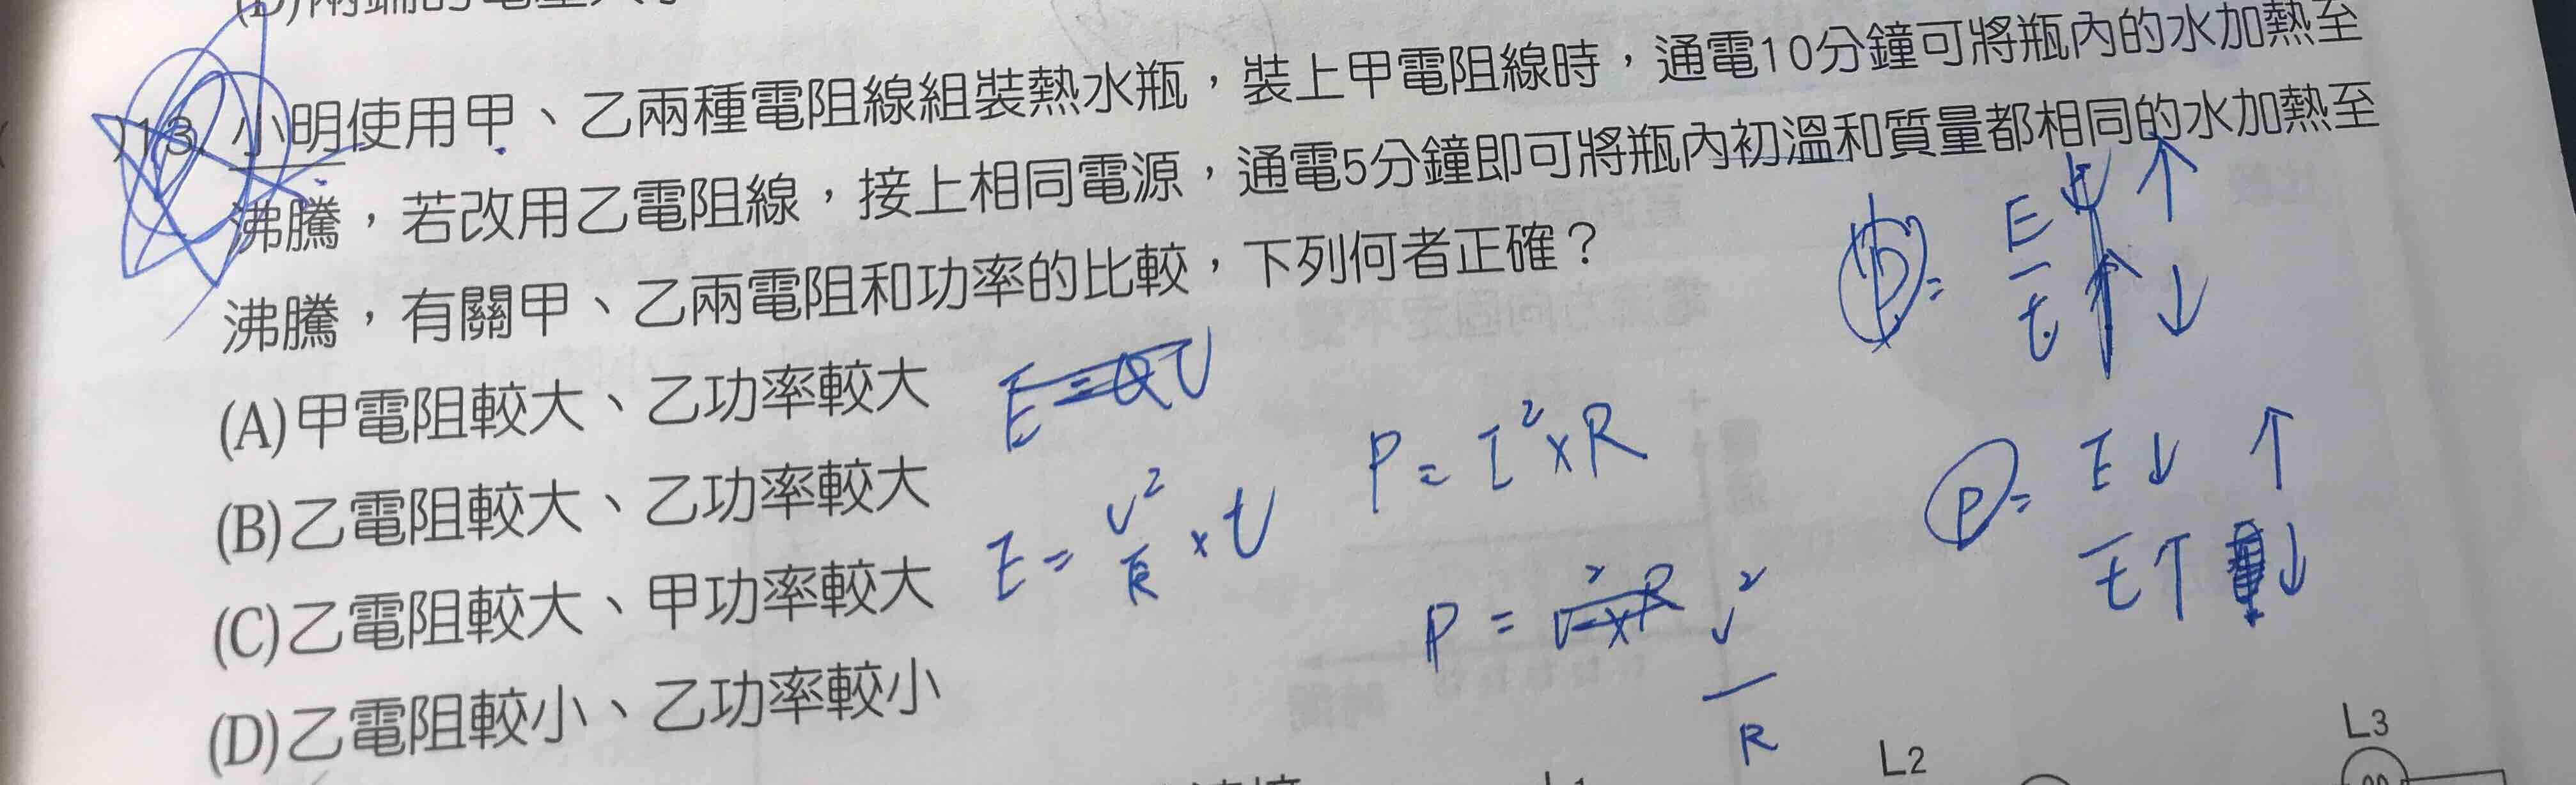 13. 小明使用甲、乙兩種電阻線組裝熱水瓶，裝上甲電阻線時，通電10分鐘可將瓶內的水加熱至
沸騰，若改用乙電阻線，接上相同電源，通電5分鐘即可將瓶內初溫和質量都相同的水加熱至
沸騰，有關甲、乙兩電阻和功率的比較，下列何者正確？
(A)甲電阻較大、乙功率較大
(B)乙電阻較大、乙功率較大
(C)乙電阻較大、甲功率較大
(D)乙電阻較小、乙功率較小
E=QV
E=V²/R×t
P=I²×R
P=V²/R
P=E↓↑
t↑↓
P=E↓↑
t↑↓
L2
L3